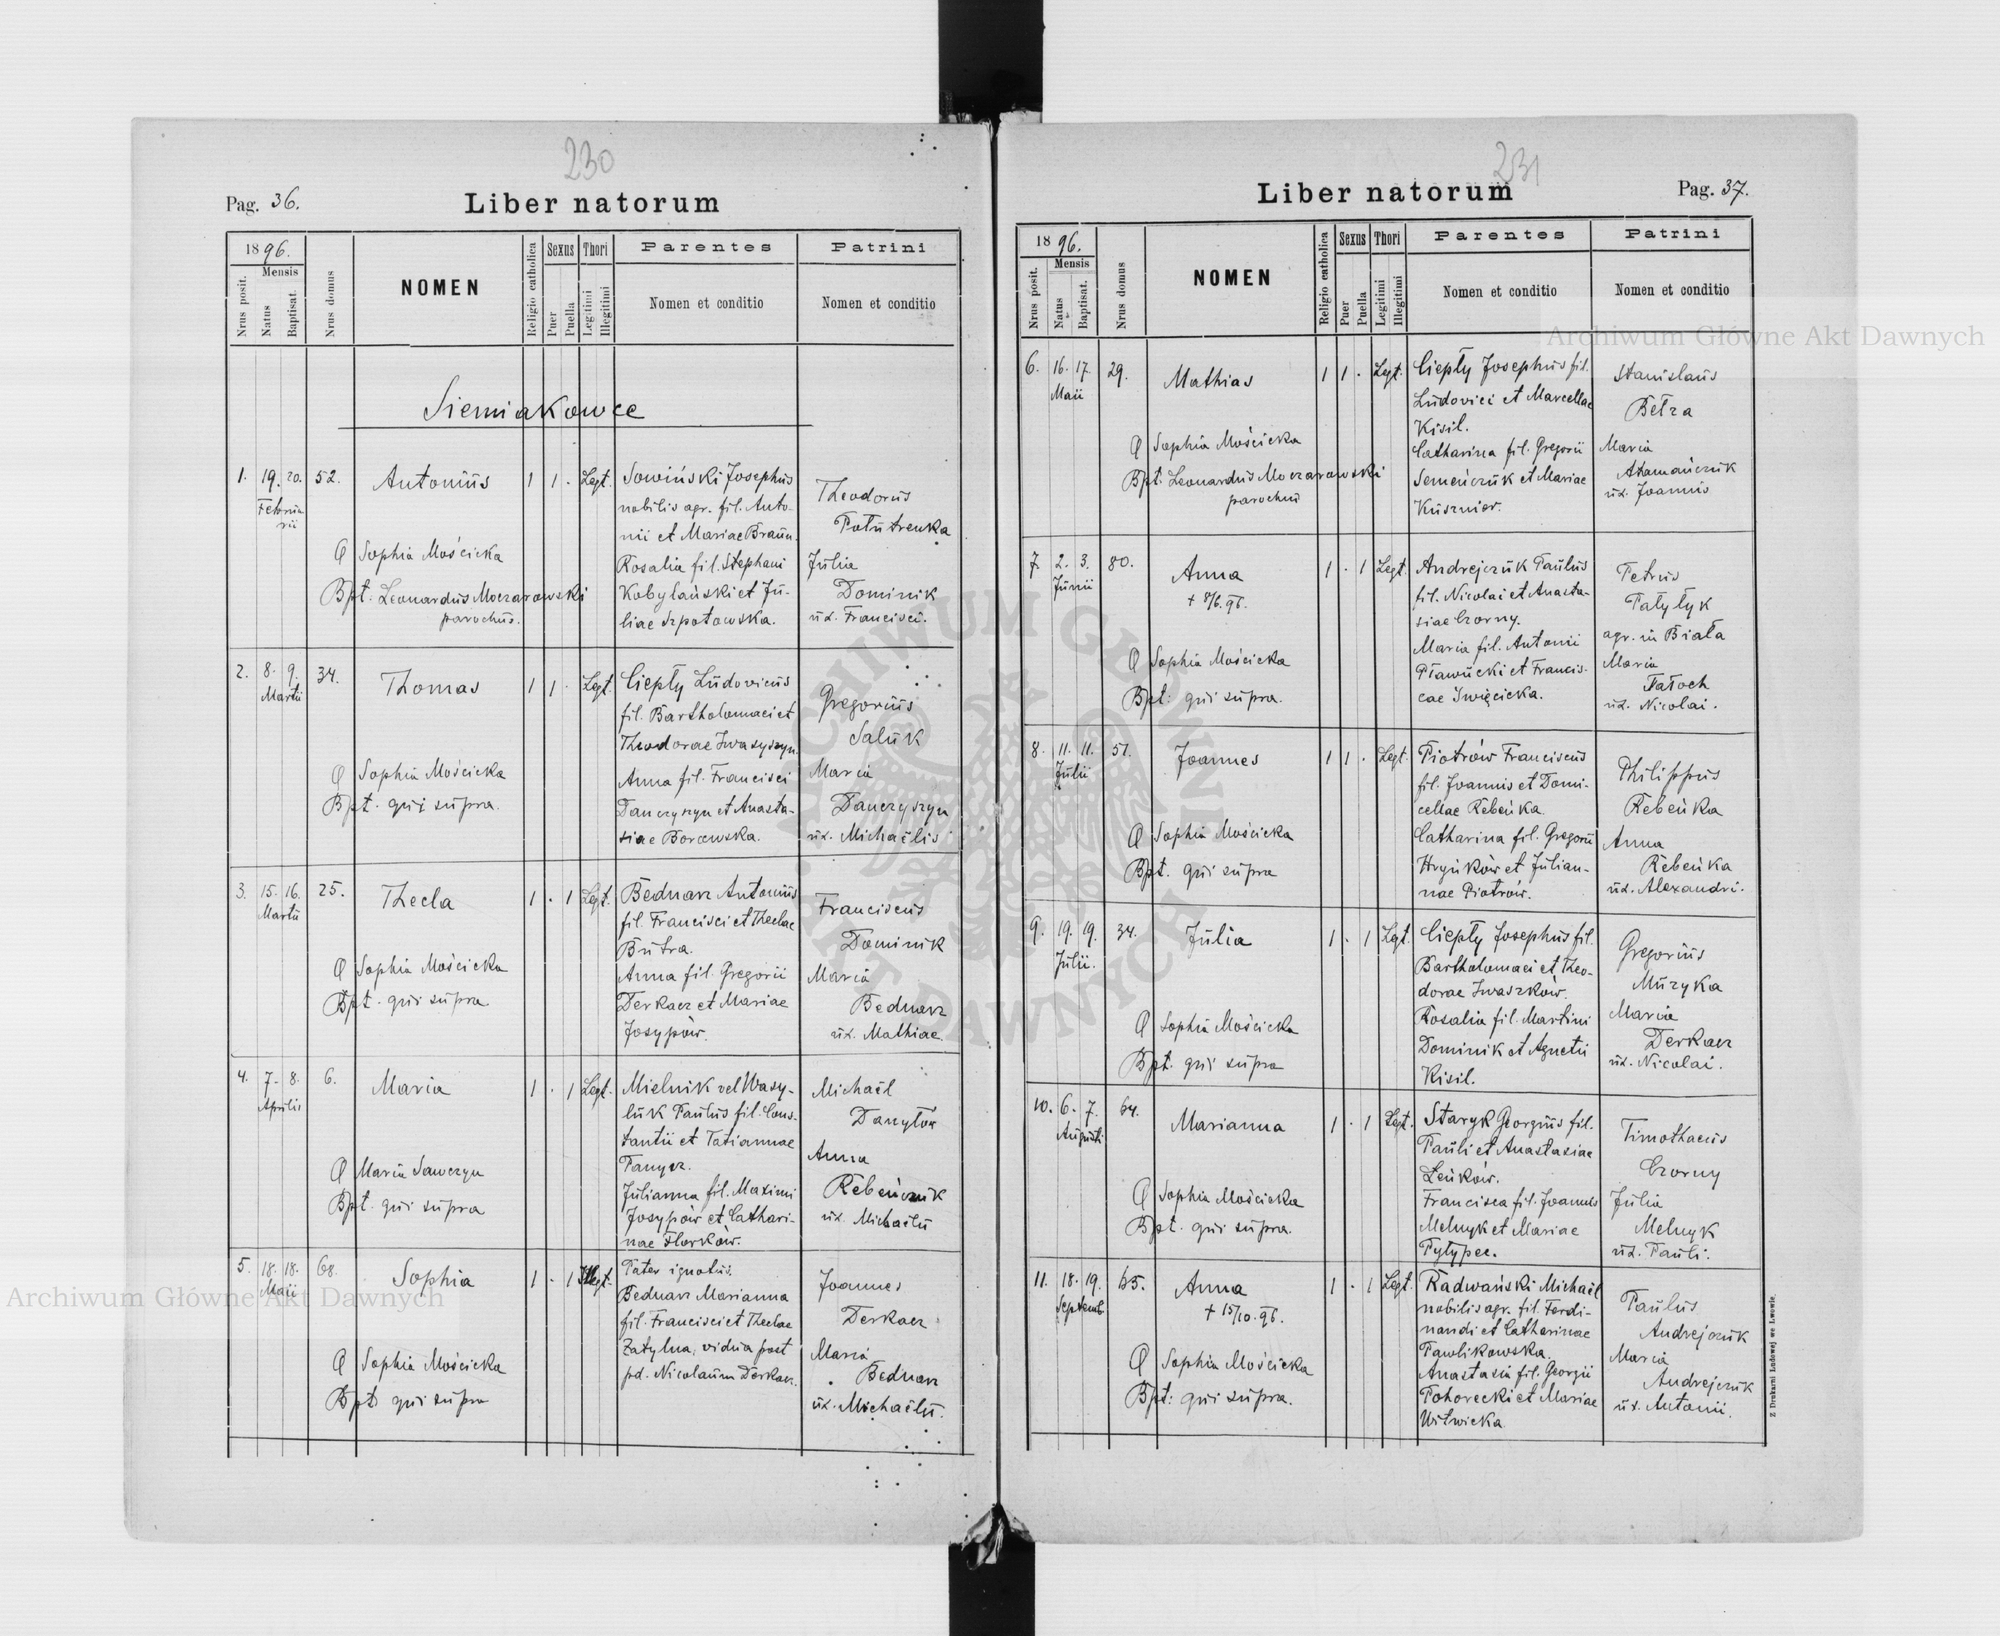 230
Pag. 36.
Liber natorum
1896.
Nrus posit.
Mensis
Natus
Baptisat.
Nrus domus
NOMEN
Religio catholica
Sexus
Puer
Puella
Thori
Legitimi
Illegitimi
Parentes
Nomen et conditio
Patrini
Nomen et conditio
Siemiakowce
1. 19. 20. 52. Antoniüs 1 1 . Legt.
Februarii
O Sophia Mościcka
Bpt. Leonardüs Moczarowski
parochüs.
Sowiński Josephüs
nobilis agr. fil. Anto-
nii et Mariae Braün.
Rosalia fil. Stephani
Kobylański et Jü-
liae Szpotowska.
Theodorüs
Potütrenka
Jülia
Dominik
üx. Francisci.
2. 8. 9. 34. Thomas 1 1 . Legt.
Martii
O Sophia Mościcka
Bpt. qüi süpra.
Ciepły Lüdovicüs
fil. Bartholomaei et
Theodorae Iwasyszyn.
Anna fil. Francisci
Danczyszyn et Anasta-
siae Borowska.
Gregoriüs
Salük
Maria
Danczyszyn
üx. Michaëlis
3. 15. 16. 25. Thecla 1 . 1 Legt.
Martii
O Sophia Mościcka
Bpt. qüi süpra
Bednarz Antoniüs
fil. Francisci et Theclae
Bütra.
Anna fil. Gregorii
Derkacz et Mariae
Josypów.
Franciscüs
Dominik
Maria
Bednarz
üx. Mathiae.
4. 7. 8. 6. Maria 1 . 1 Legt.
Aprilis
O Maria Sawczyn
Bpt. qüi süpra
Mielnik vel Wasy-
lük Paülüs fil. Cons-
tantii et Tatiannae
Panycz.
Jülianna fil. Maximi
Josypów et Cathari-
nae Florków.
Michaël
Danyłów
Anna
Rebeńczük
üx. Michaëlis
5. 18. 18. 68. Sophia 1 . 1 Illegt.
Maii
O Sophia Mościcka
Bpt qüi süpra
Pater ignotüs.
Bednarz Marianna
fil. Francisci et Theclae
Zatylna, vidüa post
pd. Nicolaüm Derkacz.
Joannes
Derkacz
Maria
Bednarz
üx. Michaëlis.
231
Liber natorum
Pag. 37.
1896.
Nrus posit.
Mensis
Natus
Baptisat.
Nrus domus
NOMEN
Religio catholica
Sexus
Puer
Puella
Thori
Legitimi
Illegitimi
Parentes
Nomen et conditio
Patrini
Nomen et conditio
6. 16. 17. 29. Mathias 1 1 . Legt.
Maii
O Sophia Mościcka
Bpt. Leonardüs Moczarowski
parochüs
Ciepły Josephüs fil.
Lüdovici et Marcellae
Kisil.
Catharina fil. Gregorii
Semeńczük et Mariae
Küsznier.
Stanislaüs
Betza
Maria
Atamańczük
üx. Joannis
7. 2. 3. 80. Anna 1 . 1 Legt.
Jünii
+ 8/6. 96.
O Sophia Mościcka
Bpt: qüi süpra.
Andrejczük Paülüs
fil. Nicolai et Anasta-
siae Czorny.
Maria fil. Antonii
Pławücki et Francis-
cae Swięcicka.
Petrüs
Pałyłyk
agr. in Biała
Maria
Pałoch
üx. Nicolai.
8. 11. 11. 51. Joannes 1 1 . Legt.
Jülii
O Sophia Mościcka
Bpt. qüi süpra
Piotrów Franciscüs
fil. Joannis et Domi-
cellae Rebeńka.
Catharina fil. Gregorii
Hryńków et Jülian-
nae Piotrów.
Philippüs
Rebeńka
Anna
Rebeńka
üx. Alexandri.
9. 19. 19. 34. Jülia 1 . 1 Legt.
Jülii.
O Sophia Mościcka
Bpt. qüi süpra
Ciepły Josephüs fil.
Bartholomaei et Theo-
dorae Iwaszków.
Rosalia fil. Martini
Dominik et Agnetis
Kisil.
Gregoriüs
Müzyka
Maria
Derkacz
üx. Nicolai.
10. 6. 7. 64. Marianna 1 . 1 Legt.
Aügüsti
O Sophia Mościcka
Bpt. qüi süpra.
Staryk Georgiüs fil.
Paüli et Anastasiae
Leńków.
Francisca fil. Joannis
Melnyk et Mariae
Pyłypec.
Timothaeüs
Czorny
Jülia
Melnyk
üx. Paüli.
11. 18. 19. 65. Anna 1 . 1 Legt.
Septemb.
+ 15/10. 96.
O Sophia Mościcka
Bpt: qüi süpra.
Radwański Michaël
nobilis agr. fil. Ferdi-
nandi et Catharinae
Pawlikowska.
Anastasia fil. Georgii
Pohorecki et Mariae
Witwicka.
Paülüs
Andrejczük
Maria
Andrejczük
üx. Antonii.
Z Drukarni Ludowej we Lwowie.
Archiwum Główne Akt Dawnych
Archiwum Główne Akt Dawnych
ARCHIWUM GŁÓWNE AKT DAWNYCH